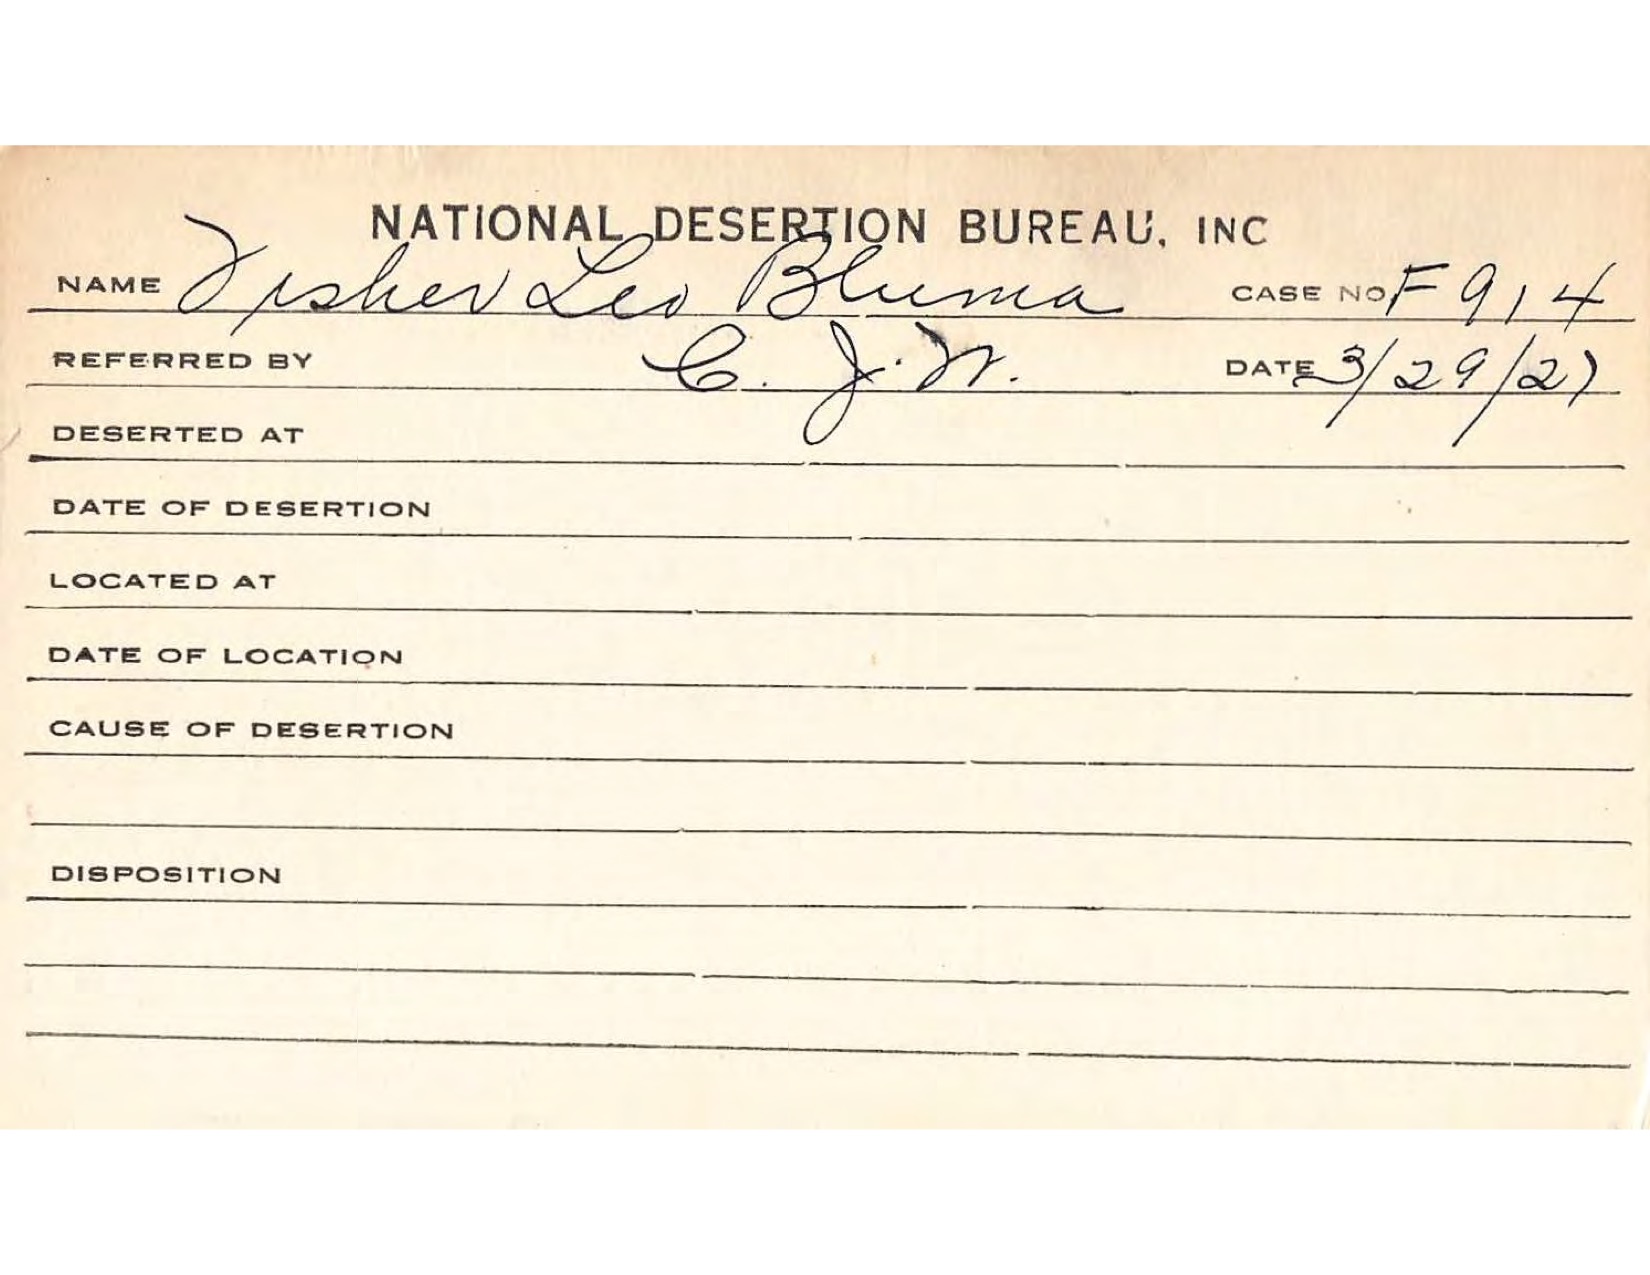 NATIONAL DESERTION BUREAU, INC
NAME Fisher Leo Bluma CASE NO. F914
REFERRED BY C. J. W. DATE 3/29/27
DESERTED AT
DATE OF DESERTION
LOCATED AT
DATE OF LOCATION
CAUSE OF DESERTION
DISPOSITION